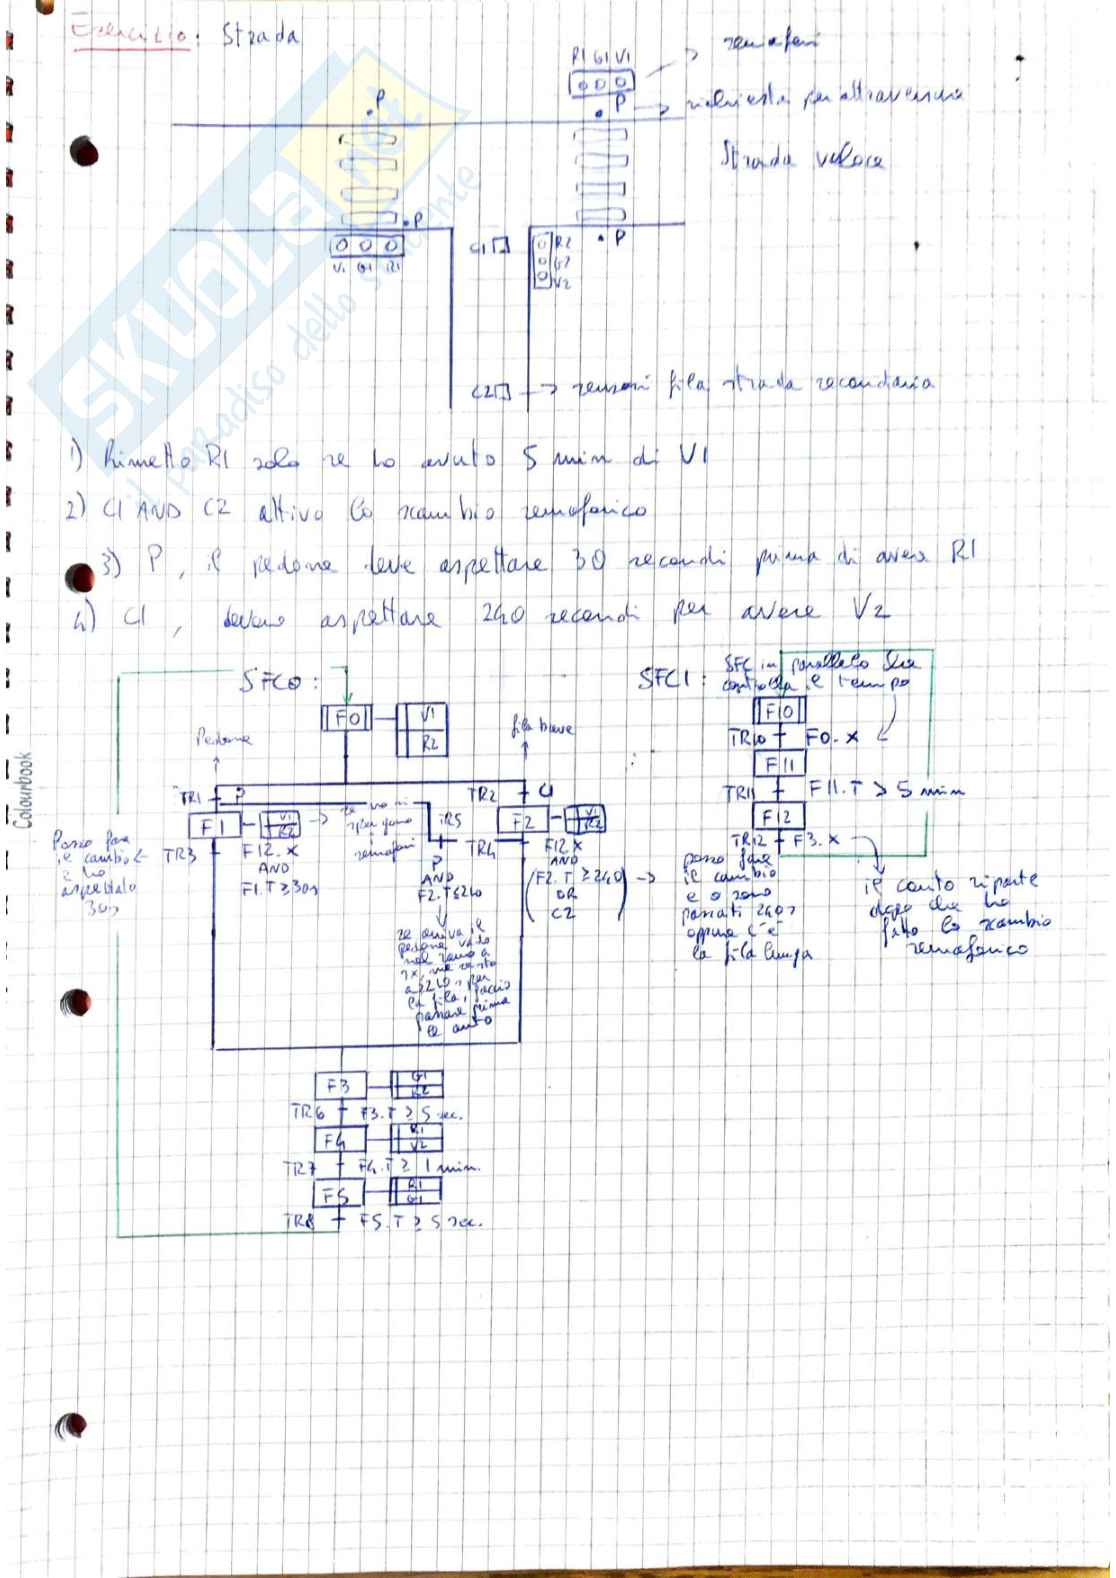 Esercizio: Strada
R1 G1 V1
semafori
P
P
richiesta per attraversare
Strada veloce
P
P
C1
R2
G2
V2
V1 G1 R1
C2
sensori fila strada secondaria
1) Rimetto R1 solo se ho avuto 5 min di V1
2) C1 AND C2 attivo lo scambio semaforico
3) P, il pedone deve aspettare 30 secondi prima di avere R1
4) C1, devono aspettare 240 secondi per avere V2
SFC0:
F0
V1
R2
Pedone
fila breve
TR1
P
TR2
C1
F1
V1
R2
se no si
spengono
semafori
TR5
F2
V1
R2
Posso fare
il cambio
e ho
aspettato
30s
TR3
F12.X
AND
F1.T ≥ 30s
P
AND
F2.T ≤ 210
TR4
F12.X
AND
(F2.T ≥ 240
OR
C2)
posso fare
il cambio
e o sono
passati 240s
oppure c'è
la fila lunga
se arriva il
pedone vado
nel ramo a
sx, ma resto
a 240s per
la fila, faccio
passare prima
le auto
F3
G1
R2
TR6
F3.T ≥ 5 sec.
F4
R1
V2
TR7
F4.T ≥ 1 min.
F5
R1
G1
TR8
F5.T ≥ 5 sec.
SFC1:
SFC in parallelo che
controlla il tempo
F10
TR10
F0.X
F11
TR11
F11.T > 5 min
F12
TR12
F3.X
il conto riparte
dopo che ho
fatto lo scambio
semaforico
Colourbook
SKUOLA.net
il paradiso dello studente